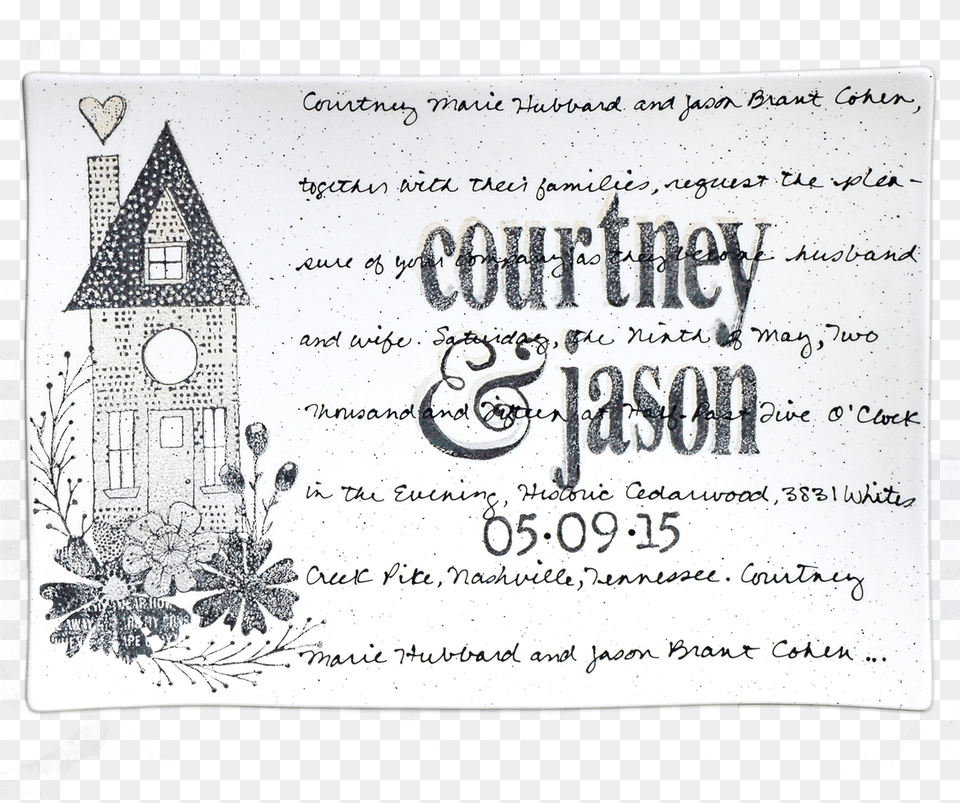 Courtney Marie Hubbard and Jason Brant Cohen,
together with their families, request the plea-
courtney
sure of your company as they become husband
and wife. Saturday, the Ninth of May, Two
& jason
Thousand and Fifteen at Half-Past Five O'Clock
in the Evening, Historic Cedarwood, 3831 Whites
05.09.15
Creek Pike, Nashville, Tennessee. Courtney
Marie Hubbard and Jason Brant Cohen...